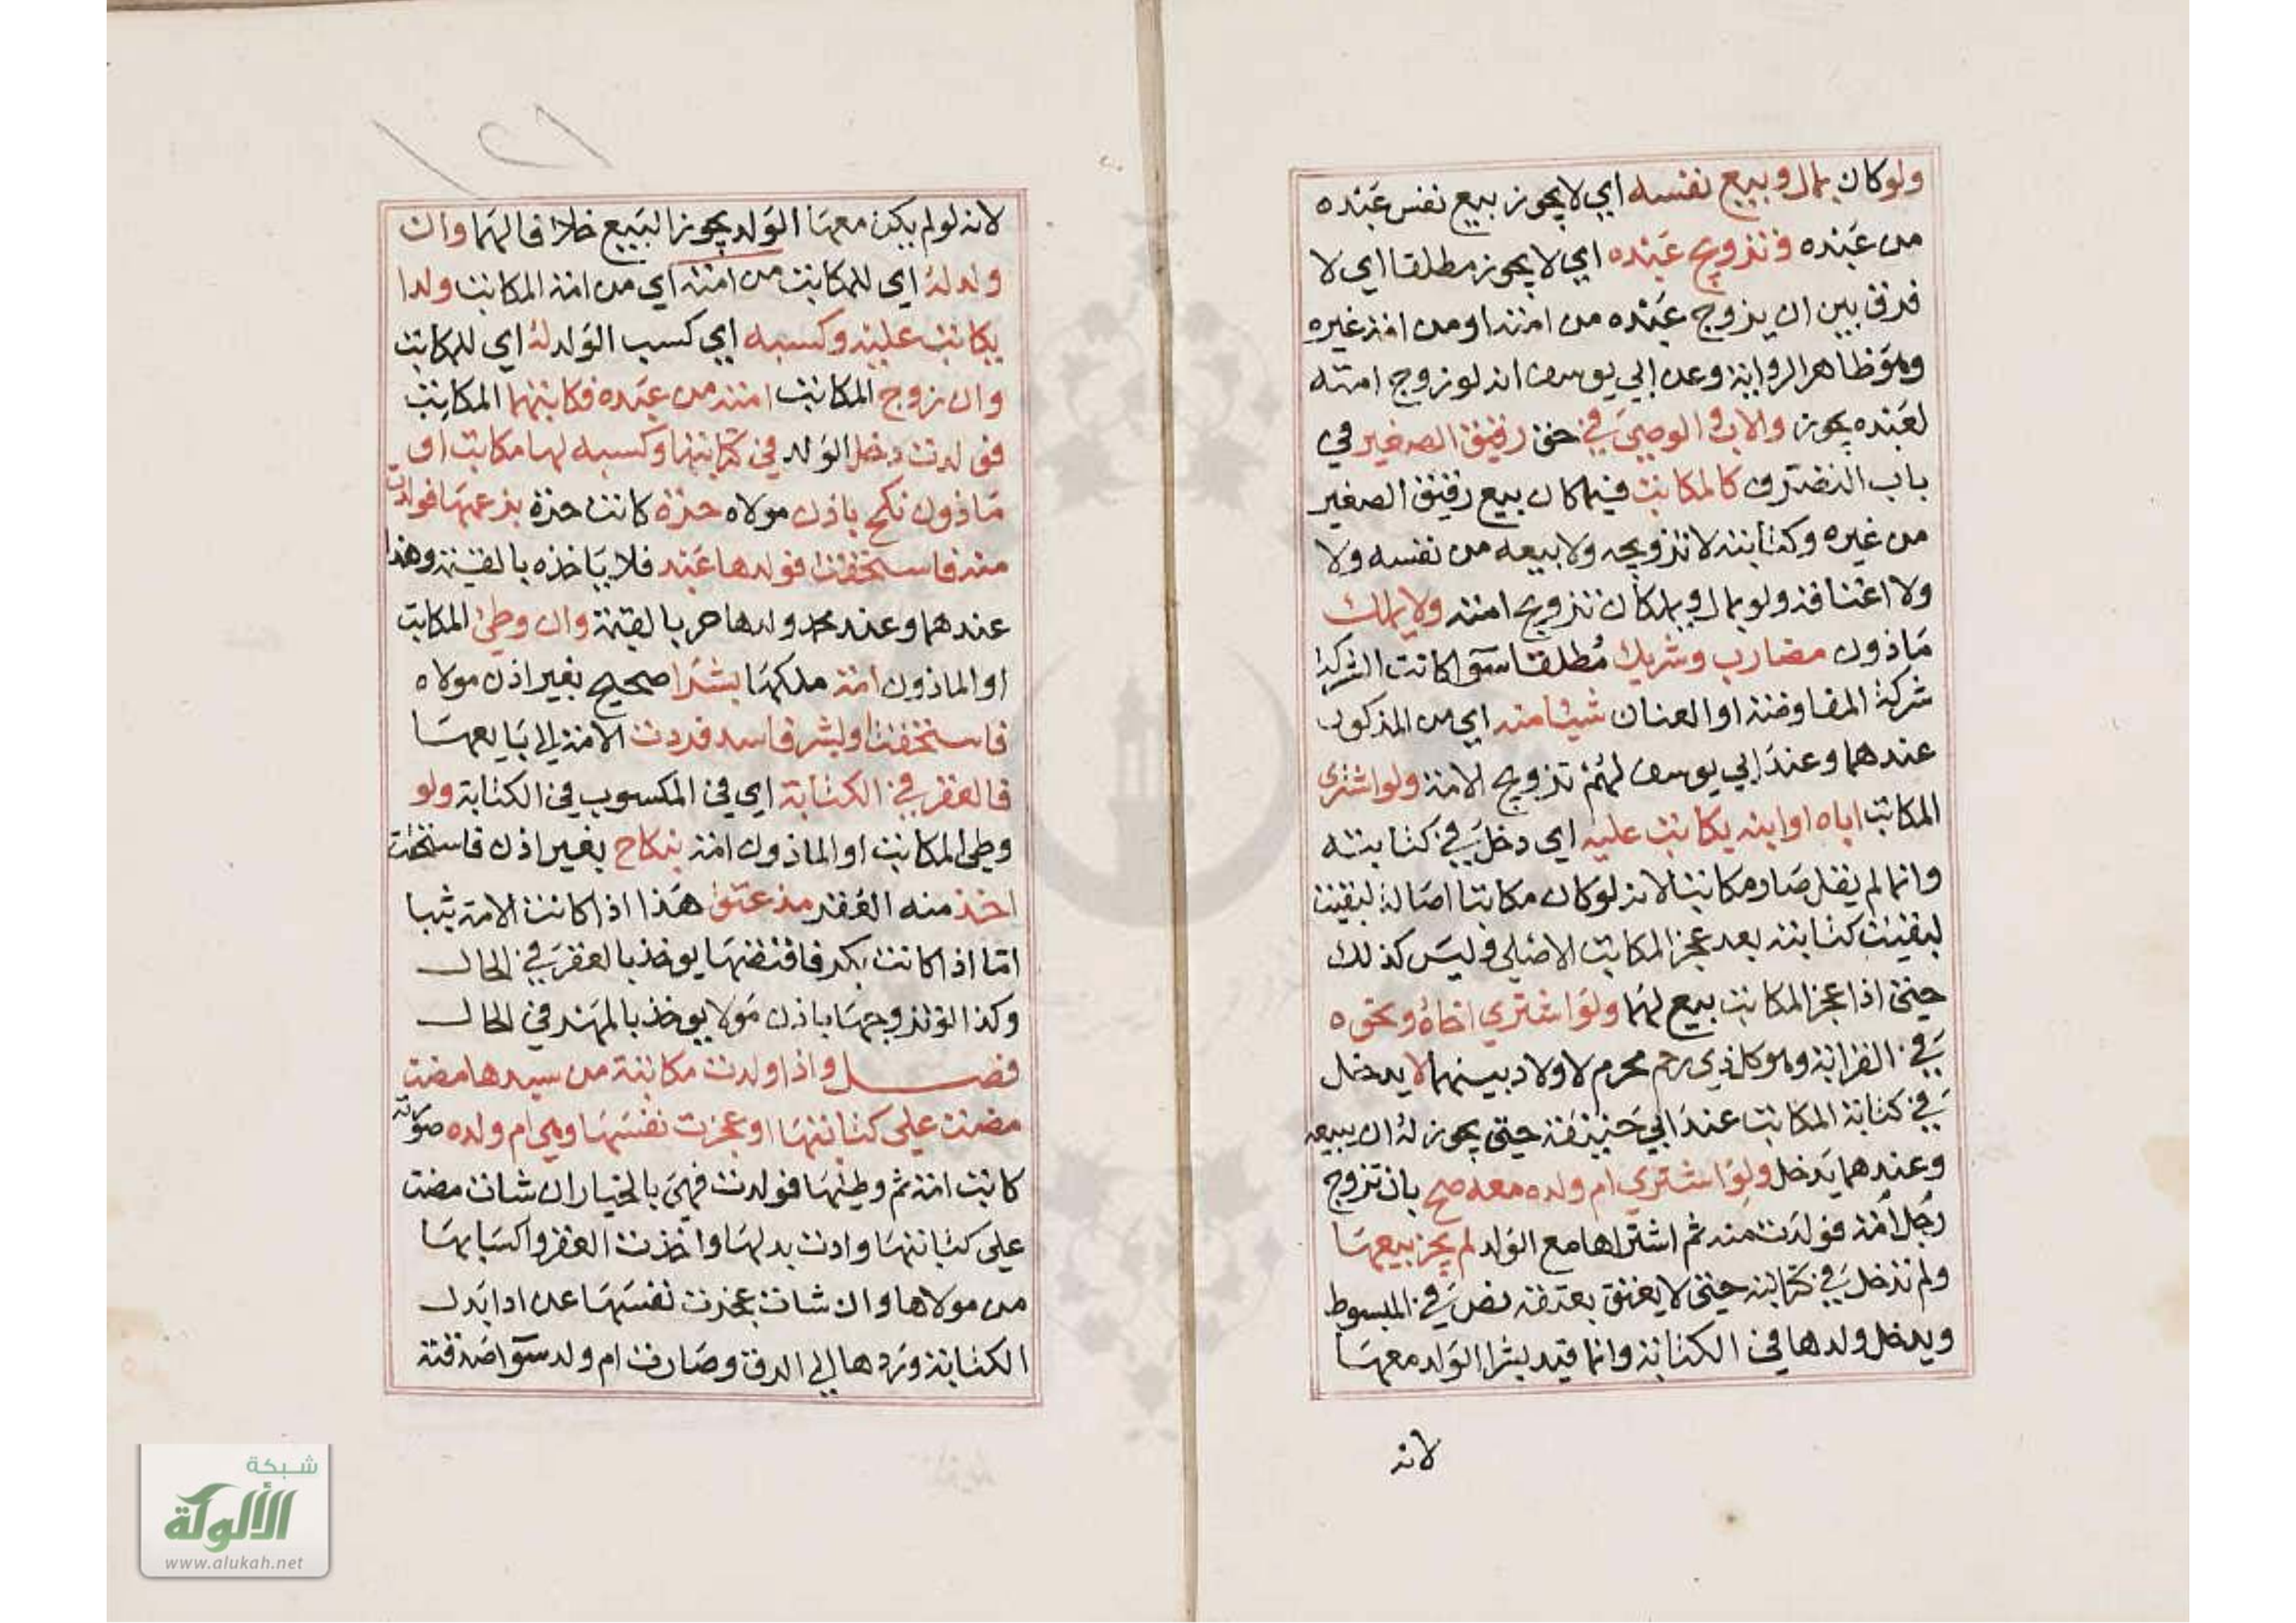 ولو كان بمال وبيع نفسه اي لا يجوز بيع نفس عبده
من عبده وتزويج عبده اي لا يجوز مطلقا اي لا
فرق بين ان يزوج عبده من امته او من امة غيره
وهو ظاهر الرواية وعن ابي يوسف انه لو زوج امته
لعبده يجوز والاب والوصي في حق رقيق الصغير في
باب التصرف كالمكاتب فيملكان بيع رقيق الصغير
من غيره وكتابته لا تزويجه ولا بيعه من نفسه ولا
ولا اعتاقه ولو بمال ويملكان تزويج امته ولا يملك
ماذون مضارب وشريك مطلقا سوا كانت الشركة
شركة المفاوضة او العنان شيئا منه اي من المذكور
عندهما وعند ابي يوسف لهم تزويج الامة ولو اشترى
المكاتب اباه او ابنه يكاتب عليه اي دخل في كتابته
وانما لم يقل صار مكاتبا لانه لو كان مكاتبا اصالة لبقيت
لبقيت كتابته بعد عجز المكاتب الاصلي وليس كذلك
حتى اذا عجز المكاتب بيع لهما ولو اشترى اخاه ونحوه
في القرابة وهو كل ذي رحم محرم لا ولاد بينهما لا يدخل
في كتابة المكاتب عند ابي حنيفة حتى يجوز له ان يبيعه
وعندهما يدخل ولو اشترى ام ولده معه صح بان تزوج
رجل امة فولدت منه ثم اشتراها مع الولد لم يجز بيعها
ولم تدخل في كتابته حتى لا يعتق بعتقه نص في المبسوط
ويدخل ولدها في الكتابة وانما قيد بشرا الولد معها
لانه
لانه لو لم يكن معها الولد يجوز البيع خلافا لهما وان
ولد له اي للمكاتب من امته اي من امة المكاتب ولدا
يكاتب عليه وكسبه اي كسب الولد له اي للمكاتب
وان زوج المكاتب امته من عبده فكاتبهما المكاتب
فولدت دخل الولد في كتابتها وكسبه لها مكاتب او
ماذون نكح باذن مولاه حرة كانت حرة بزعمها فولدت
منه فاستحقت فولدها عبد فلا ياخذه بالقيمة وهذا
عندهما وعند محمد ولدها حر بالقيمة وان وطئ المكاتب
او الماذون امة ملكها بشرا صحيح بغير اذن مولاه
فاستحقت او بشر فاسد فردت الامة الى بايعها
فالعقر في الكتابة اي في المكسوب في الكتابة ولو
وطئ المكاتب او الماذون امة بنكاح بغير اذن فاستحقت
اخذ منه العقر مذ عتق هذا اذا كانت الامة ثيبا
اما اذا كانت بكر فاقتضها يوخذ بالعقر في الحال
وكذا لو تزوجها باذن مولا يوخذ بالمهر في الحال
فصل واذا ولدت مكاتبة من سيدها مضت
مضت على كتابتها او عجزت نفسها وهي ام ولده صورته
كاتب امة ثم وطئها فولدت فهي بالخيار ان شات مضت
على كتابتها وادت بدلها واخذت العقر واكسابها
من مولاها وان شات عجزت نفسها عن ادا بدل
الكتابة وردها الى الرق وصارت ام ولد سوا صدقته
شبكة
الألوكة
www.alukah.net